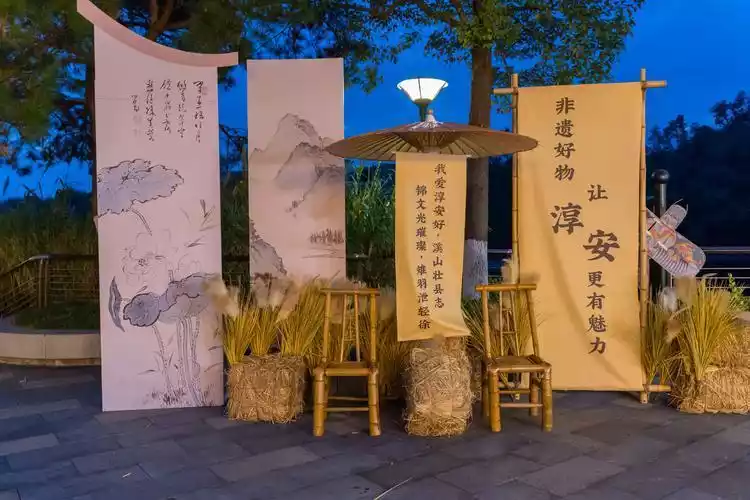 我爱淳安好，溪山壮县志
锦文光璀璨，雉羽泄轻徐
非遗好物
让
淳安
更有魅力